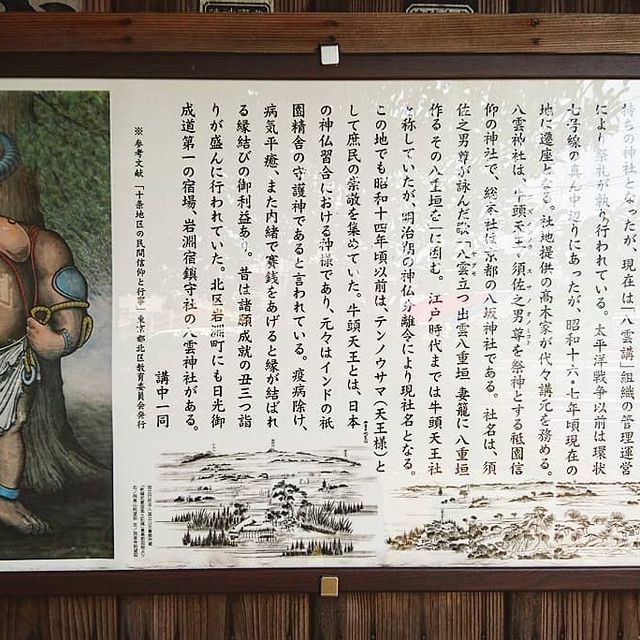 持ちの神社となったが、現在は「八雲講」組織の管理運営
により祭礼が執り行われている。太平洋戦争以前は環状
七号線の真ん中辺りにあったが、昭和十六・七年頃現在の
地に遷座となる。社地提供の髙木家が代々講元を務める。
八雲神社は、牛頭天王・須佐之男尊を祭神とする祗園信
仰の神社で、総本社は京都の八坂神社である。社名は、須
佐之男尊が詠んだ歌「八雲立つ出雲八重垣 妻籠に八重垣
作るその八重垣を」に因む。江戸時代までは牛頭天王社
と称していたが、明治初の神仏分離令により現社名となる。
この地でも昭和十四年頃以前は、テンノウサマ(天王様)と
して庶民の崇敬を集めていた。牛頭天王とは、日本
の神仏習合における神様であり、元々はインドの祇
園精舎の守護神であると言われている。疫病除け、
病気平癒、また内緒で賽銭をあげると縁が結ばれ
る縁結びの御利益あり。昔は諸願成就の丑三つ詣
りが盛んに行われていた。北区岩淵町にも日光御
成道第一の宿場、岩淵宿鎮守社の八雲神社がある。
講中一同
※ 参考文献 「十条地区の民間信仰と行事」東京都北区教育委員会発行